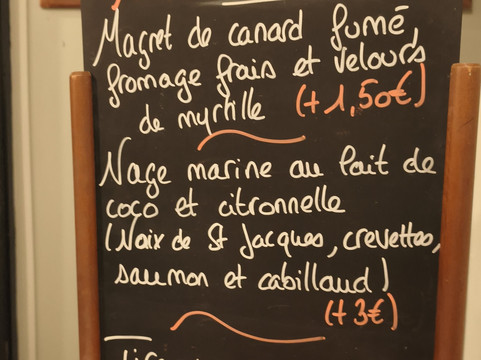 Magret de canard fumé,
fromage frais et velours
de myrtille (+1,50€)
Nage marine au lait de
coco et citronnelle
(Noix de St Jacques, crevettes,
saumon et cabillaud)
(+3€)